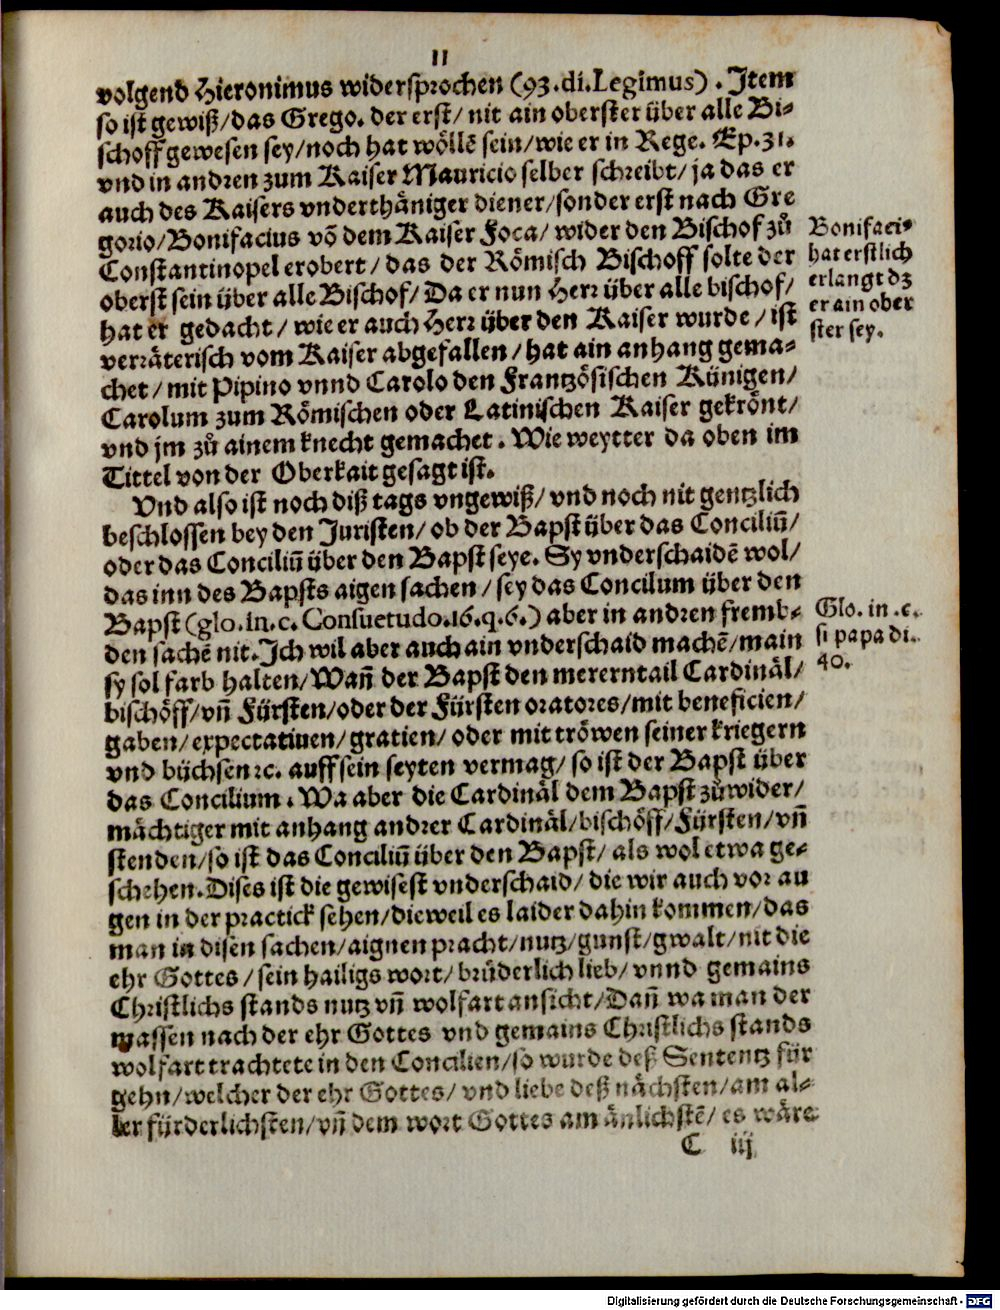 11
volgend Hieronimus widersprochen (93.di.Legimus). Item
so ist gewiß/das Grego. der erst/ nit ain oberster über alle Bi-
schoff gewesen sey/noch hat wöllē sein/wie er in Rege. Ep.31.
vnd in andren zum Kaiser Mauricio selber schreibt/ ja das er
auch des Kaisers vnderthäniger diener/sonder erst nach Gre
gorio/Bonifacius võ dem Kaiser Foca/ wider den Bischof zů
Constantinopel erobert/ das der Römisch Bischoff solte der
oberst sein über alle Bischof/ Da er nun Herr über alle bischof/
hat er gedacht/ wie er auch Herr über den Kaiser wurde/ ist
verräterisch vom Kaiser abgefallen/hat ain anhang gema-
chet/ mit Pipino vnnd Carolo den Frantzösischen Künigen/
Carolum zum Römischen oder Latinischen Kaiser gekrönt/
vnd jm zů ainem knecht gemachet. Wie weytter da oben im
Tittel von der Oberkait gesagt ist.
Bonifaci⁹
hat erstlich
erlangt dz
er ain ober
ster sey.
Vnd also ist noch diß tags vngewiß/ vnd noch nit gentzlich
beschlossen bey den Juristen/ ob der Bapst über das Conciliū/
oder das Conciliū über den Bapst seye. Sy vnderschaidē wol/
das inn des Bapsts aigen sachen/ sey das Concilum über den
Bapst (glo.in.c. Consuetudo.16.q.6.) aber in andren fremb-
den sachē nit. Ich wil aber auch ain vnderschaid machē/main
sy sol farb halten/Wañ der Bapst den mererntail Cardinäl/
bischöff/vñ Fürsten/oder der Fürsten oratores/mit beneficien/
gaben/expectatiuen/gratien/ oder mit tröwen seiner kriegern
vnd büchsen ꝛc. auff sein seyten vermag/ so ist der Bapst über
das Concilium. Wa aber die Cardinäl dem Bapst zůwider/
mächtiger mit anhang andrer Cardinäl/bischöff/Fürsten/vñ
stenden/so ist das Conciliū über den Bapst/ als wol etwa ge-
schehen. Dises ist die gewisest vnderschaid/ die wir auch vor au
gen in der practick sehen/dieweil es laider dahin kommen/das
man in disen sachen/aignen pracht/nutz/gunst/gwalt/nit die
ehr Gottes/sein hailigs wort/brüderlich lieb/ vnnd gemains
Christlichs stands nutz vñ wolfart ansicht/Dañ wa man der
massen nach der ehr Gottes vnd gemains Christlichs stands
wolfart trachtete in den Concilien/so wurde deß Sententz für
gehn/welcher der ehr Gottes/ vnd liebe deß nächsten/am al-
ler fürderlichsten/vñ dem wort Gottes am änlichstē/ es wäre
Glo. in .c.
si papa di.
40.
C iij
Digitalisierung gefördert durch die Deutsche Forschungsgemeinschaft - DFG